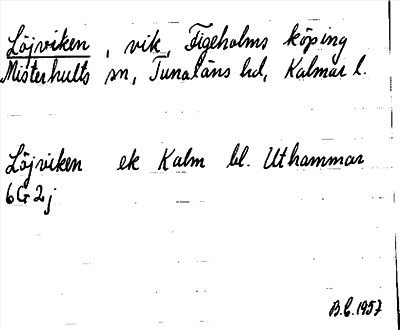 Löjviken, vik, Figeholms köping
Misterhults sn, Tunaläns hd, Kalmar l.
Löjviken ek Kalm bl. Uthammar
6G2j
B.C.1957